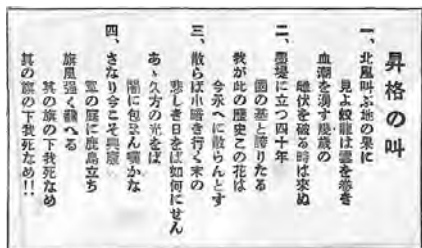 昇格の叫
一、北風叫ぶ地の果に
見よ蛟龍は雲を巻き
血潮を湧す幾歳の
雌伏を破る時は来ぬ
二、墨堤に立つ四十年
國の基と誇りたる
我が此の歴史この花は
今永へに散らんとす
三、散らば小暗き行く末の
悲しき日をば如何にせん
あゝ久方の光をば
闇に包まん
四、さなり今こそ興廢
軍の庭に鹿島立ち
旗風强く飜へる
其の旗の下我死なめ
其の旗の下我死なめ!!